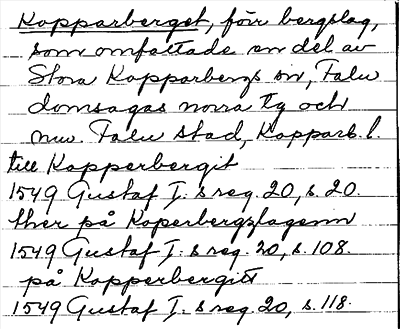 Kopparberget, förr bergslag,
som omfattade en del av
Stora Kopparbergs sn, Falu
domsagas norra tg och
nuv. Falu stad, Kopparb. l.
till Kopperbergit
1549 Gustaf I:s reg. 20, s. 20.
ther på Koperbergzlagenn
1549 Gustaf I:s reg. 20, s. 108.
på Kopperbergitt
1549 Gustaf I:s reg. 20, s. 118.